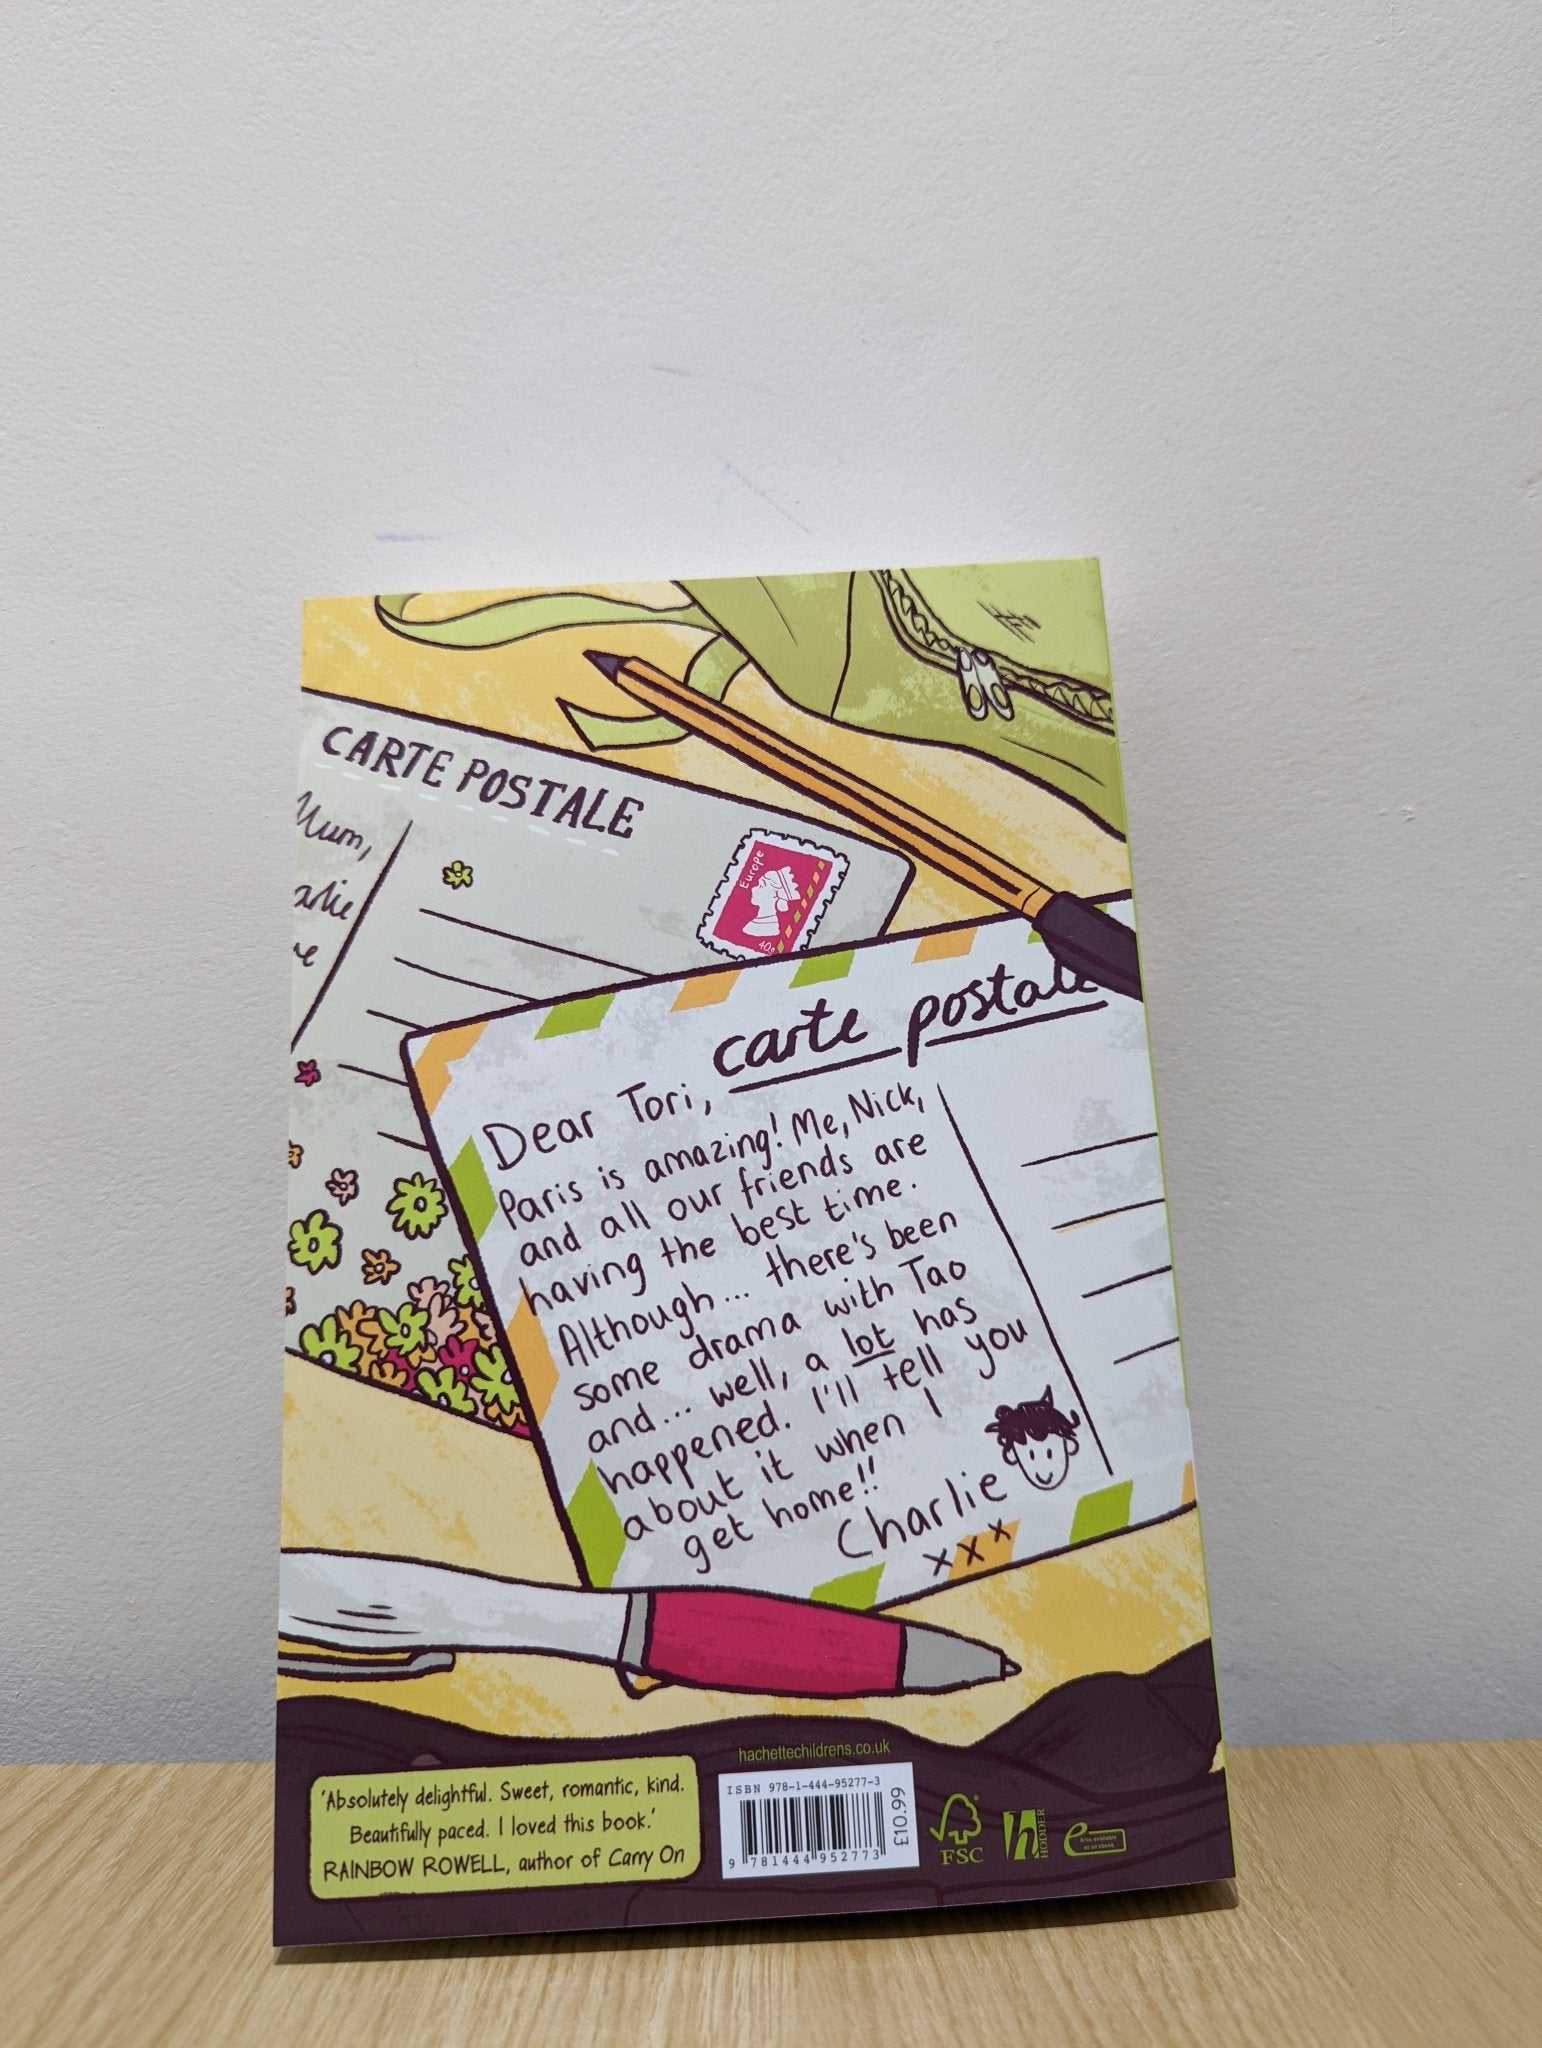 CARTE POSTALE
Mum,
Europe
carte postale
Dear Tori,
Paris is amazing! Me, Nick,
and all our friends are
having the best time.
Although... there's been
some drama with Tao
and... well, a lot has
happened. I'll tell you
about it when I
get home!!
Charlie
x x x
hachettechildrens.co.uk
'Absolutely delightful. Sweet, romantic, kind.
Beautifully paced. I loved this book.'
RAINBOW ROWELL, author of Carry On
ISBN 978-1-444-95277-3
9 781444 952773
£10.99
FSC
h HODDER
e Also available
as an ebook